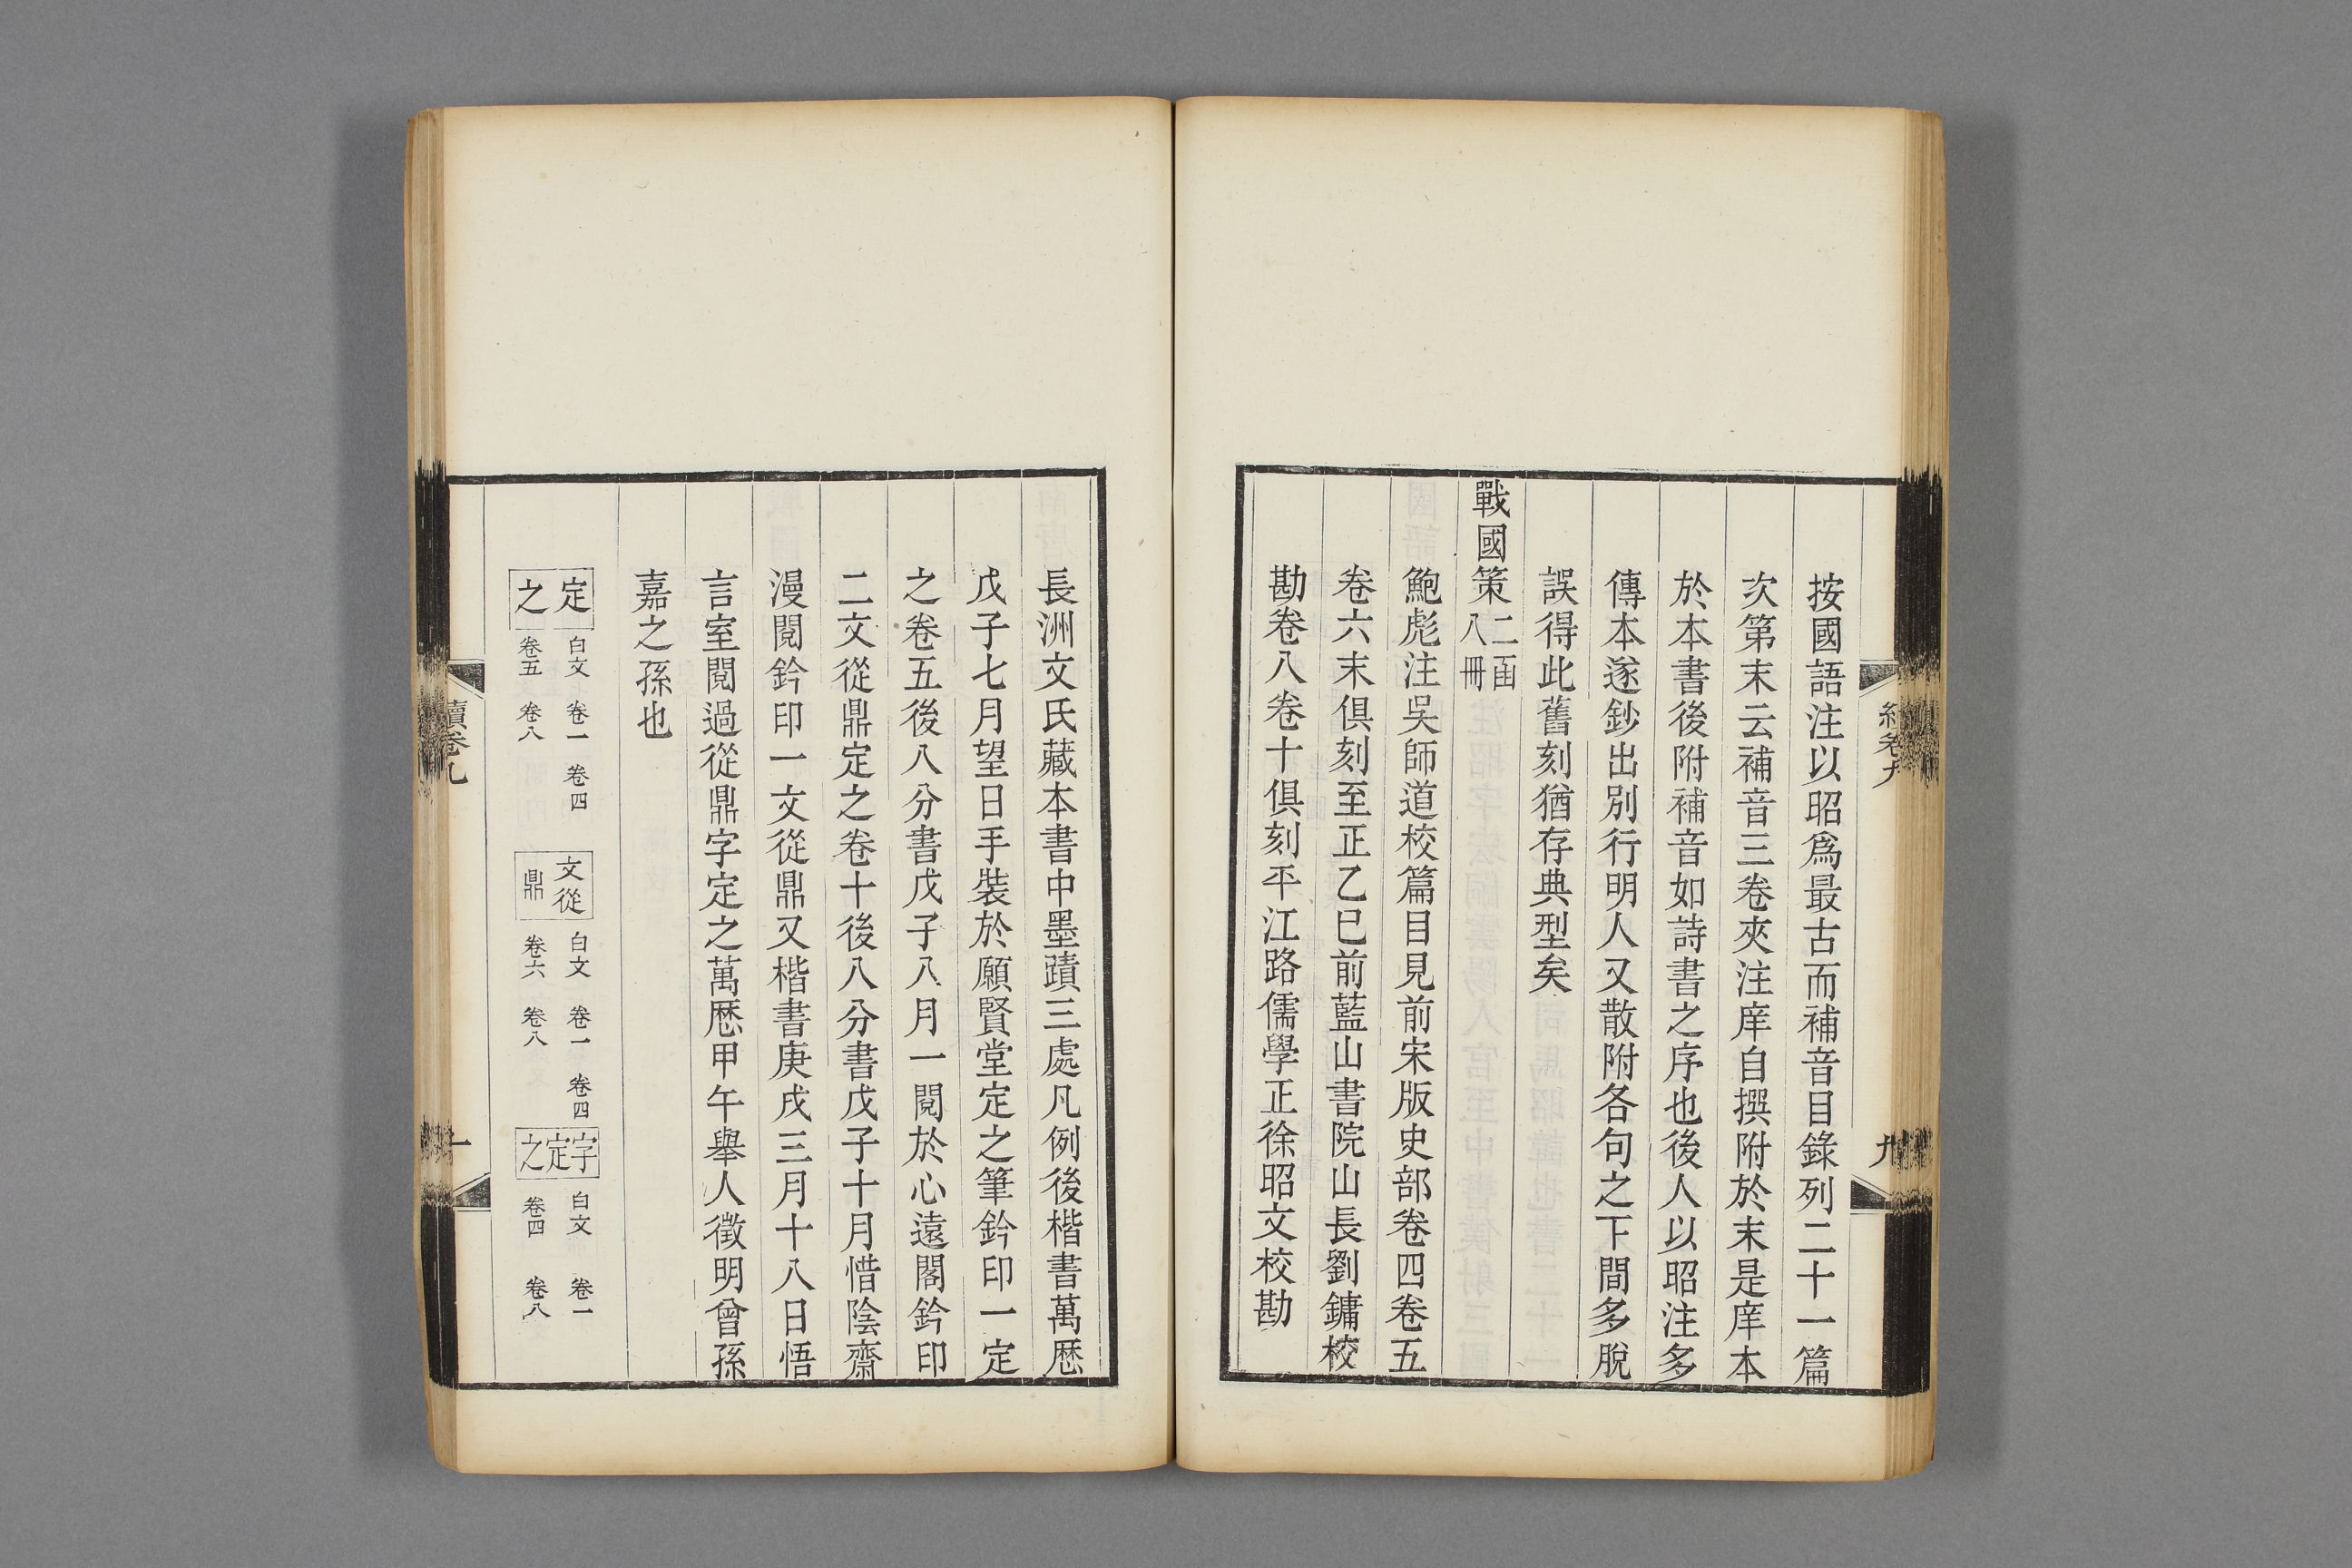 按國語注以昭爲最古而補音目錄列二十一篇
次第末云補音三卷夾注庠自撰附於末是庠本
於本書後附補音如詩書之序也後人以昭注多
傳本遂鈔出別行明人又散附各句之下間多脫
誤得此舊刻猶存典型矣
戰國策二函八冊
鮑彪注吳師道校篇目見前宋版史部卷四卷五
卷六末俱刻至正乙巳前藍山書院山長劉鏞校
勘卷八卷十俱刻平江路儒學正徐昭文校勘
長洲文氏藏本書中墨蹟三處凡例後楷書萬厯
戊子七月望日手裝於願賢堂定之筆鈐印一定
之卷五後八分書戊子八月一閱於心遠閣鈐印
二文從鼎定之卷十後八分書戊子十月惜陰齋
漫閱鈐印一文從鼎又楷書庚戌三月十八日悟
言室閱過從鼎字定之萬厯甲午舉人徵明曾孫
嘉之孫也
定之 白文 卷一 卷四 卷五 卷八
文從鼎 白文 卷一 卷四 卷六 卷八
字定之 白文 卷一 卷四 卷八
續卷九
九
續卷九
十